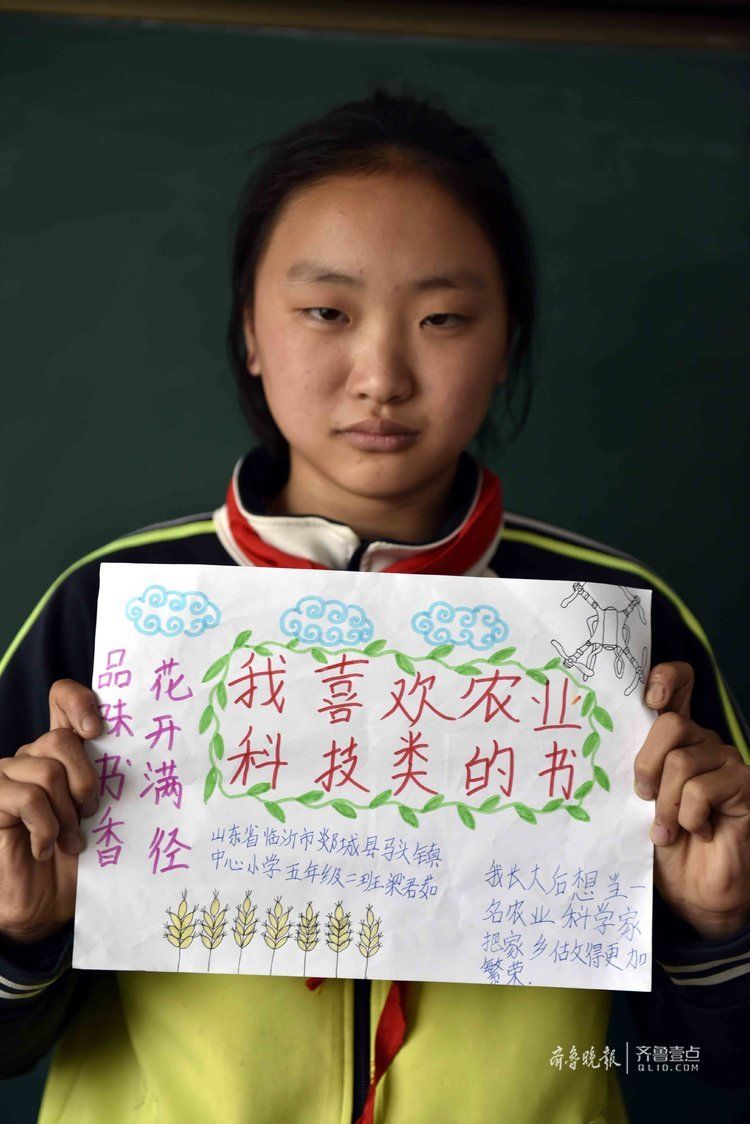 品味书香
花开满径
我喜欢农业
科技类的书
山东省临沂市郯城县马头镇
中心小学五年级二班梁君茹
我长大后想当一
名农业科学家
把家乡做得更加
繁荣.
齐鲁晚报
齐鲁壹点
QLID.COM